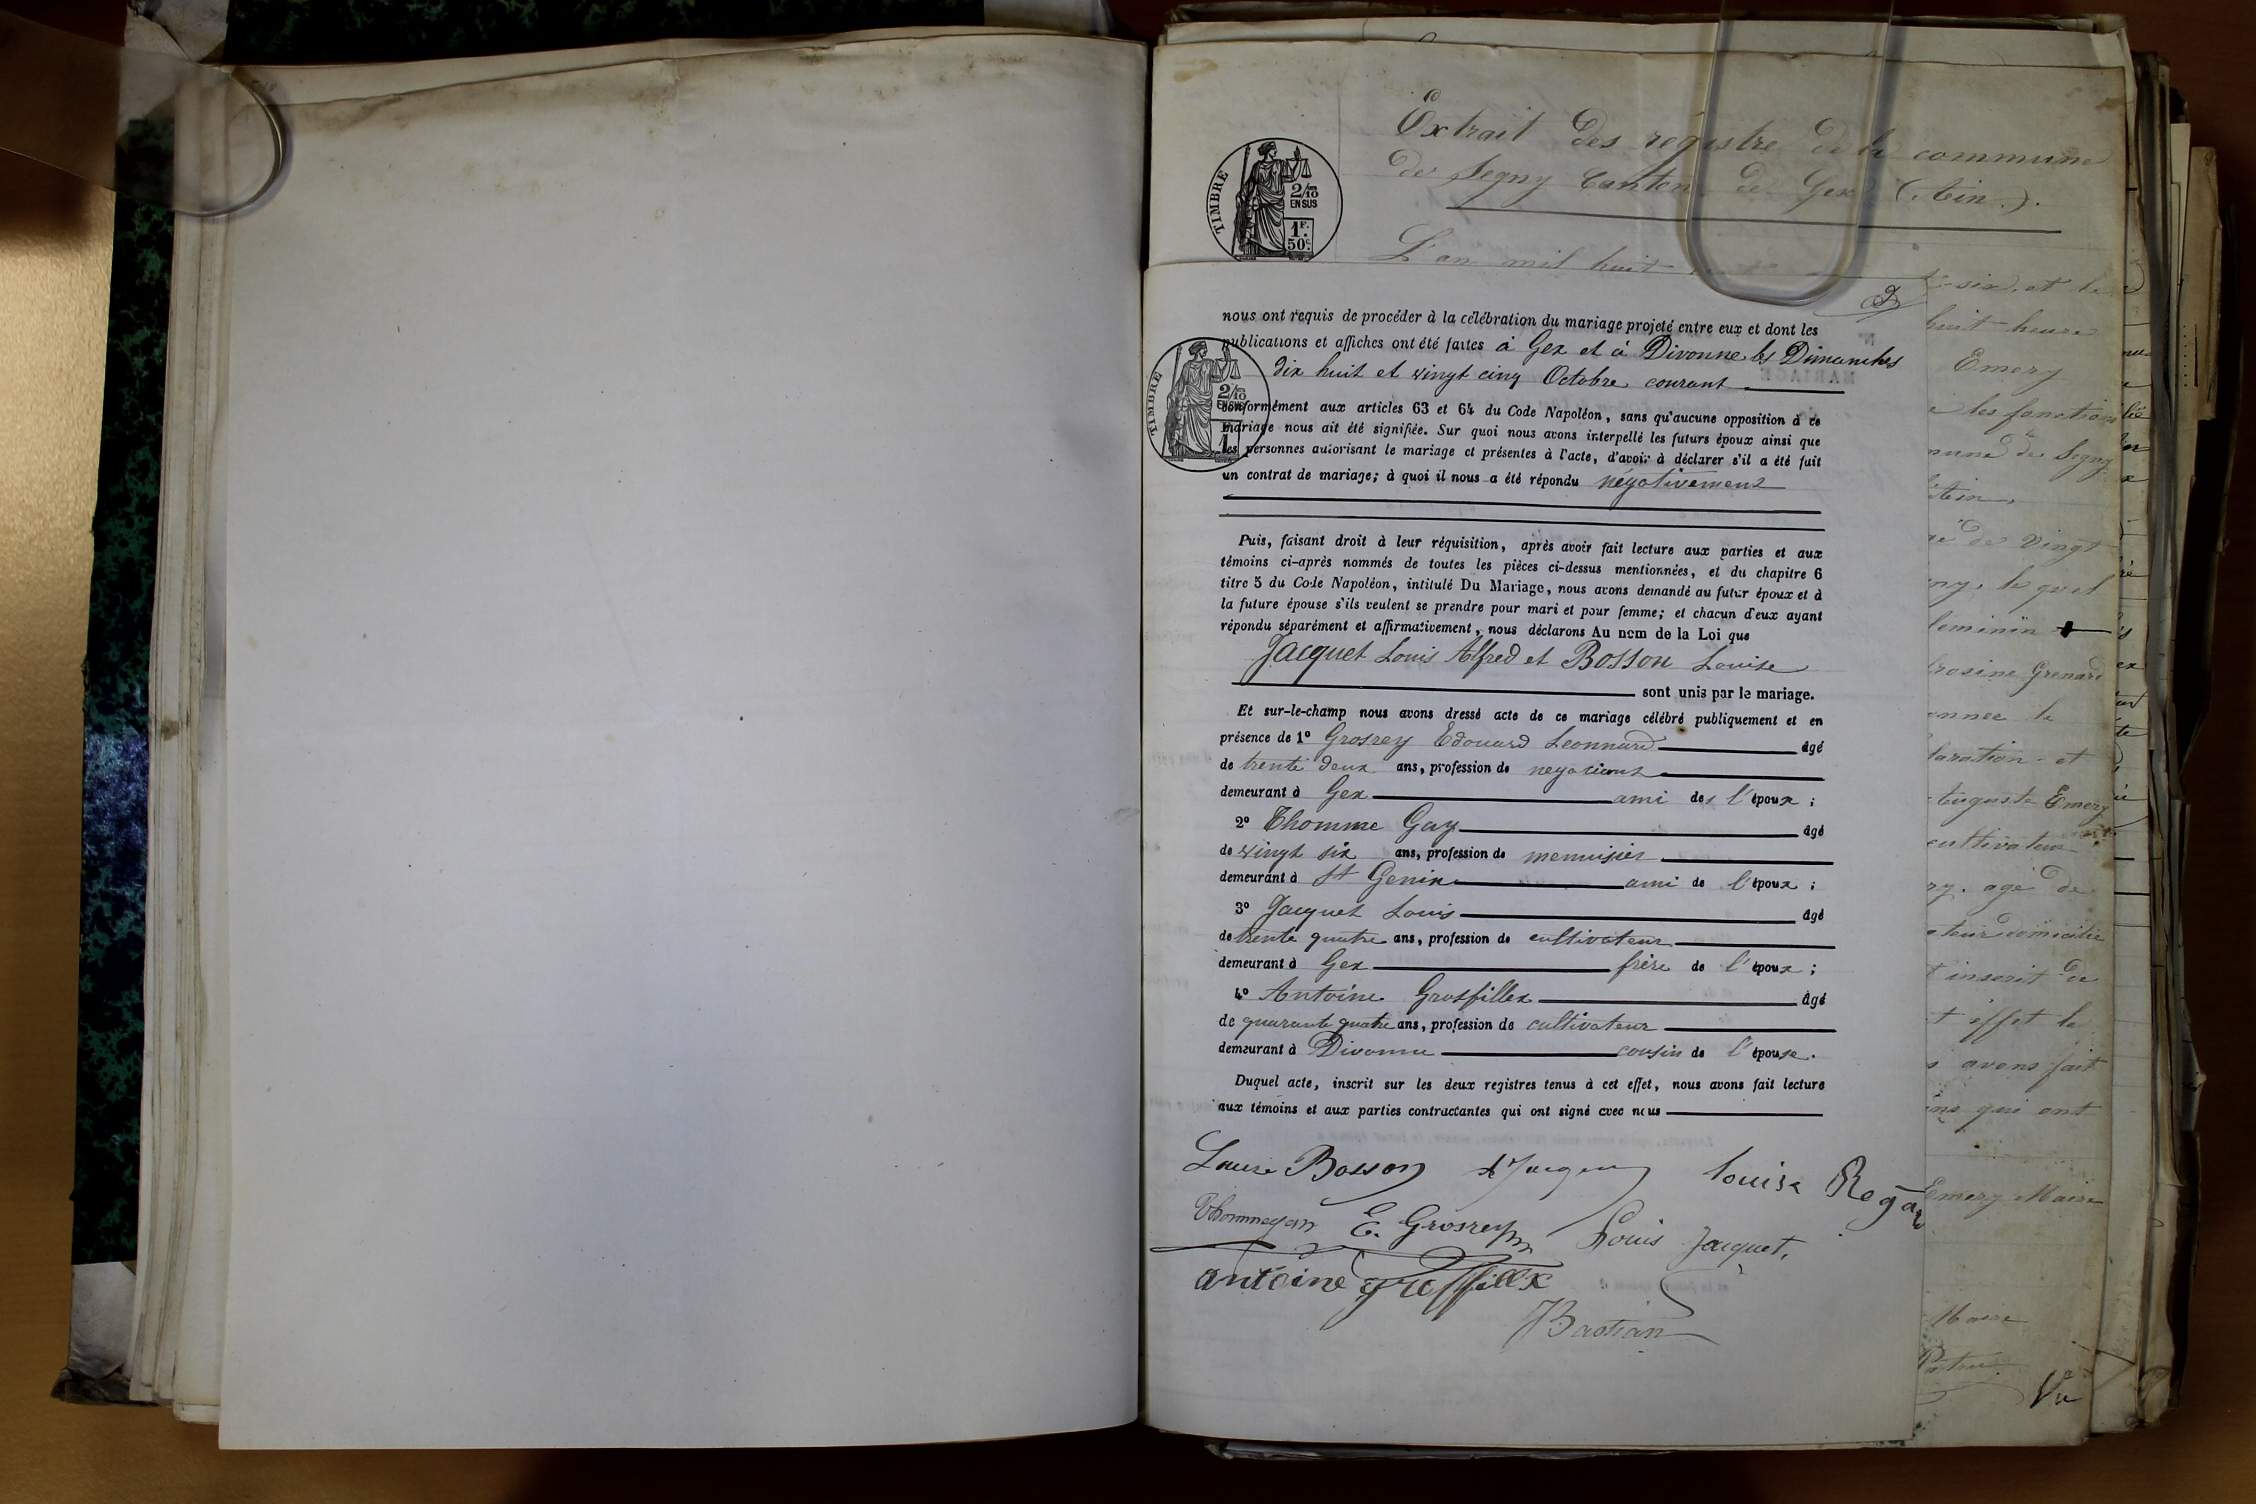 Extrait des régistre de la commune
de Segny Canton de Gex (Ain).
TIMBRE
2/10 EN SUS
1F. 50c.
L'an mil huit
-six, et le
nous ont requis de procéder à la célébration du mariage projeté entre eux et dont les
publications et affiches ont été faites à Gex et à Divonne les Dimanches
dix huit et vingt cinq Octobre courant
TIMBRE
2/10 EN SUS
1
conformément aux articles 63 et 64 du Code Napoléon, sans qu'aucune opposition à ce
mariage nous ait été signifiée. Sur quoi nous avons interpellé les futurs époux ainsi que
les personnes autorisant le mariage et présentes à l'acte, d'avoir à déclarer s'il a été fait
un contrat de mariage; à quoi il nous a été répondu négativement
Puis, faisant droit à leur réquisition, après avoir fait lecture aux parties et aux
témoins ci-après nommés de toutes les pièces ci-dessus mentionnées, et du chapitre 6
titre 5 du Code Napoléon, intitulé Du Mariage, nous avons demandé au futur époux et à
la future épouse s'ils veulent se prendre pour mari et pour femme; et chacun d'eux ayant
répondu séparément et affirmativement, nous déclarons Au nom de la Loi que
Jacquet Louis Alfred et Bosson Louise
sont unis par le mariage.
Et sur-le-champ nous avons dressé acte de ce mariage célébré publiquement et en
présence de 1° Grosrey Edouard Leonnard âgé
de trente deux ans, profession de negociant
demeurant à Gex ami de l'époux ;
2° Thomme Gay âgé
de vingt six ans, profession de menuisier
demeurant à St Genix ami de l'époux ;
3° Jacquet Louis âgé
de trente quatre ans, profession de cultivateur
demeurant à Gex frère de l'époux ;
4° Antoine Grosfillex âgé
de quarante quatre ans, profession de cultivateur
demeurant à Divonne cousin de l'épouse.
Duquel acte, inscrit sur les deux registres tenus à cet effet, nous avons fait lecture
aux témoins et aux parties contractantes qui ont signé avec nous
Louise Bosson A Jacquet louise Regar
Thommegay E. Grosrey Louis Jacquet.
antoine grosfillex
Bastian
huit heure
Emery
les fonctions
de Segny
de Vingt
le quel
feminin
rosine Grenard
année le
Auguste Emery
cultivateur
agé de
domicilié
inscrit de
effet le
avons fait
qui ont
Emery Maire
Maire
Vu